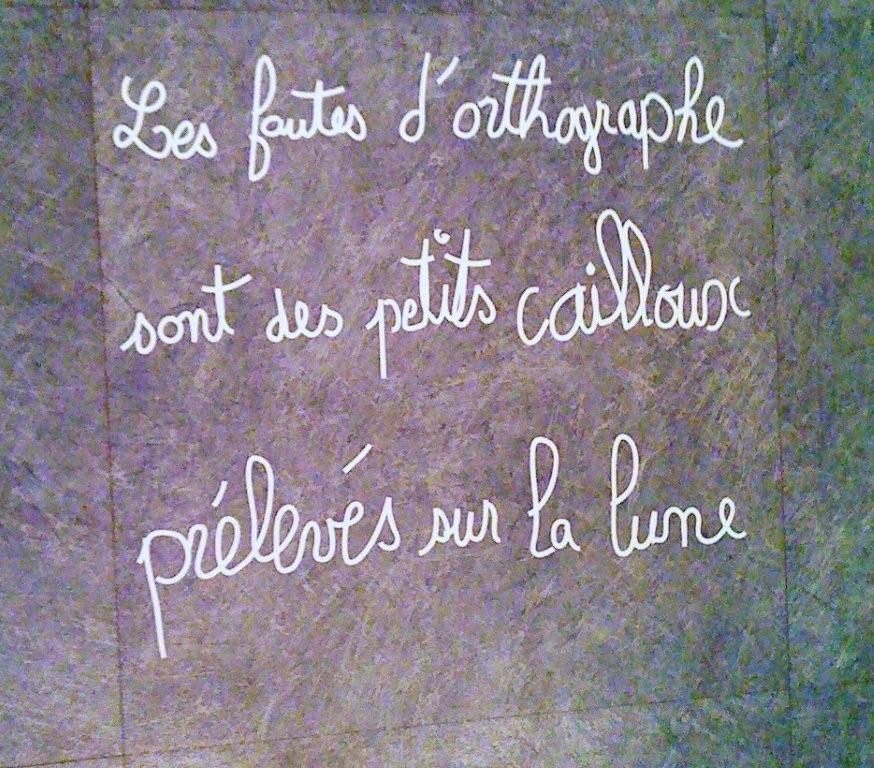 Les fautes d'orthographe
sont des petits cailloux
prélevés sur la lune